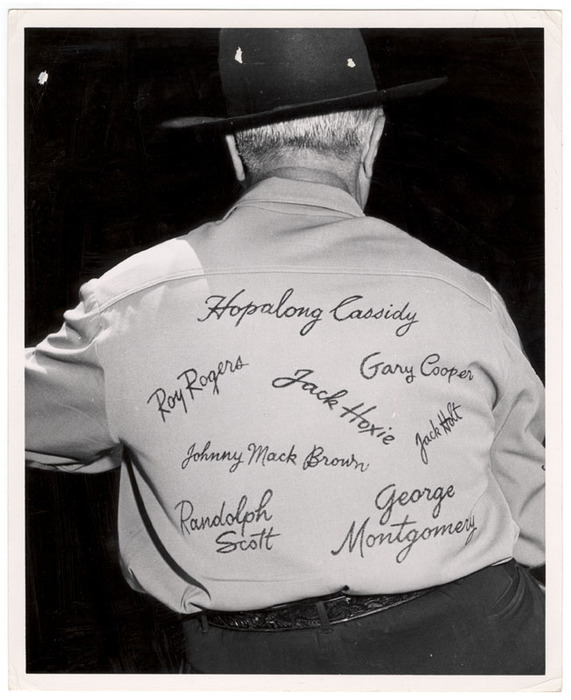 Hopalong Cassidy
Roy Rogers
Gary Cooper
Jack Hoxie
Jack Holt
Johnny Mack Brown
Randolph
Scott
George
Montgomery